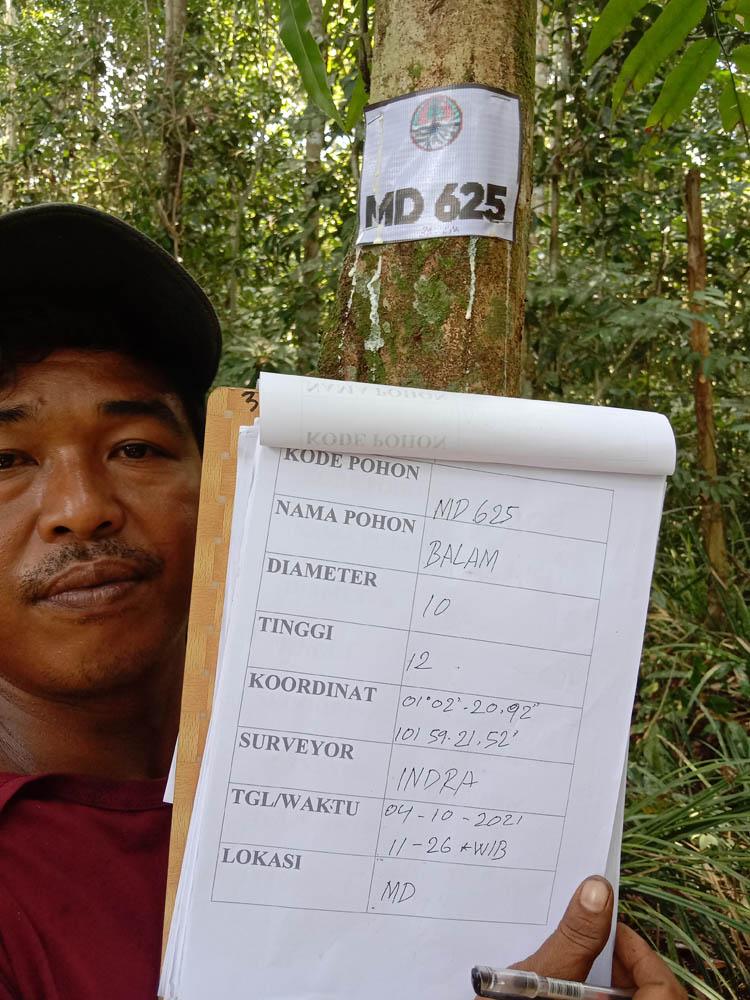 MD 625
3
NAMA POHON
KODE POHON
KODE POHON MD 625
NAMA POHON BALAM
DIAMETER 10
TINGGI 12
KOORDINAT 01°02'-20,92"
101 59.21,52'
SURVEYOR INDRA
TGL/WAKTU 04-10-2021
11-26 *WIB
LOKASI MD